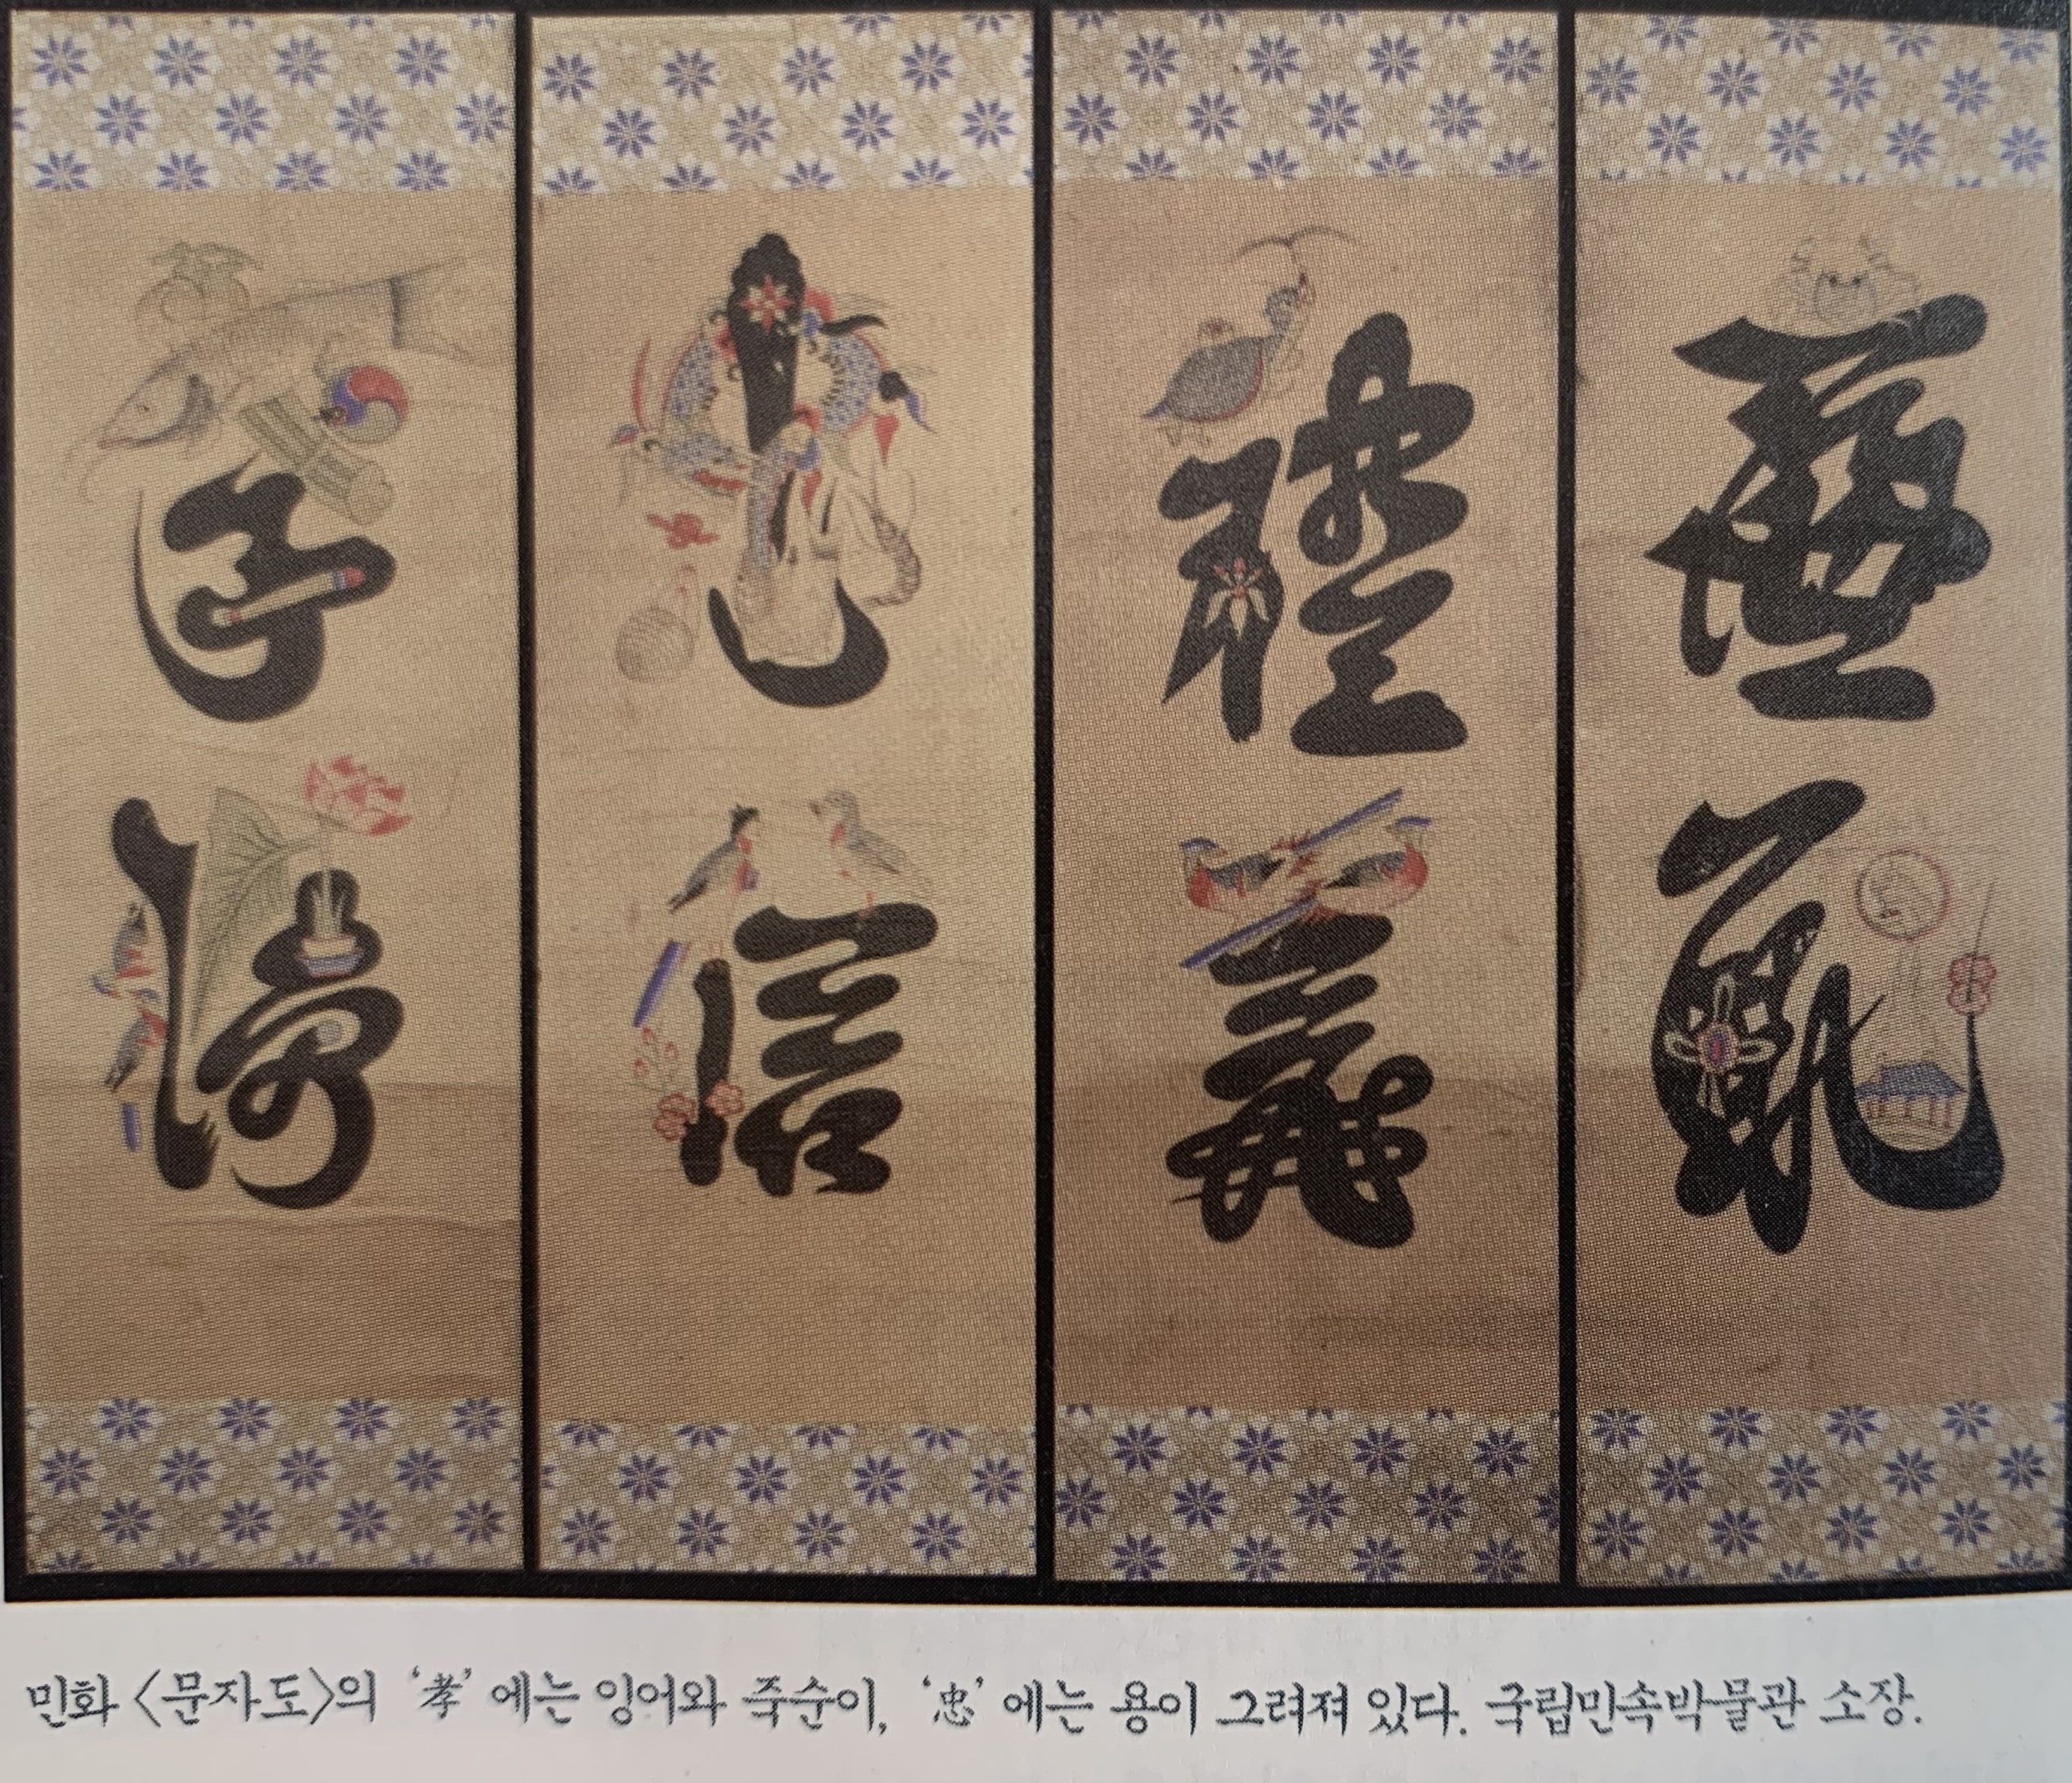 孝
悌
忠
信
禮
義
廉
恥
민화 〈문자도〉의 ‘孝’ 에는 잉어와 죽순이, ‘忠’ 에는 용이 그려져 있다. 국립민속박물관 소장.